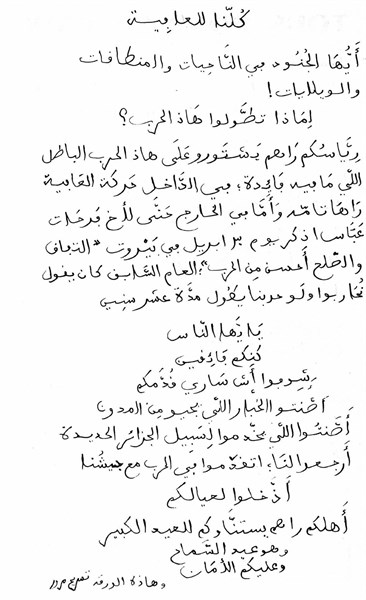 كُلّنا للعافية
أَيُّهَا الجُنُود في النَّاحيات والمنطقات
والويلايات!
لِمَاذا تطَّولوا هَاذ الحرب؟
ريَّاسكُم رَاهم عَلَى هاذ الحرب الباطل
اللّي مَا فيه فايدة؛ في الدَّاخل حركة العافية
رَاهَا تامّه وَأَمَّا في الخارج حتَّى للأخ فرحات
عبَّاس اذكر يوم ابريل في بَيْروت «التفاق
والصّلح أحسن مِن الحرب»؛ العام السَّابق كان يقول
نُحاربوا ولو حربنا يطول مدَّة عشر سنين
يا ايّها النّاس
كنكم فايقين
أَش ساري قُدَّمكم
أَنْتوا الخيار اللّي يجيو من
أَنْتُوا اللّي يخّدموا لسَبيل الجزائر الجديدة
أَرجعوا لنَا؛ اتقدّموا في الحرب مع جيشُنا
أَدْخلوا لعيالكم
أَهلكم راهم يستنَّاوكم للعيد الكبير
وهو عيد السَّماح
وعليكم الأمَان
وهاذه الورقة تصريح مرور